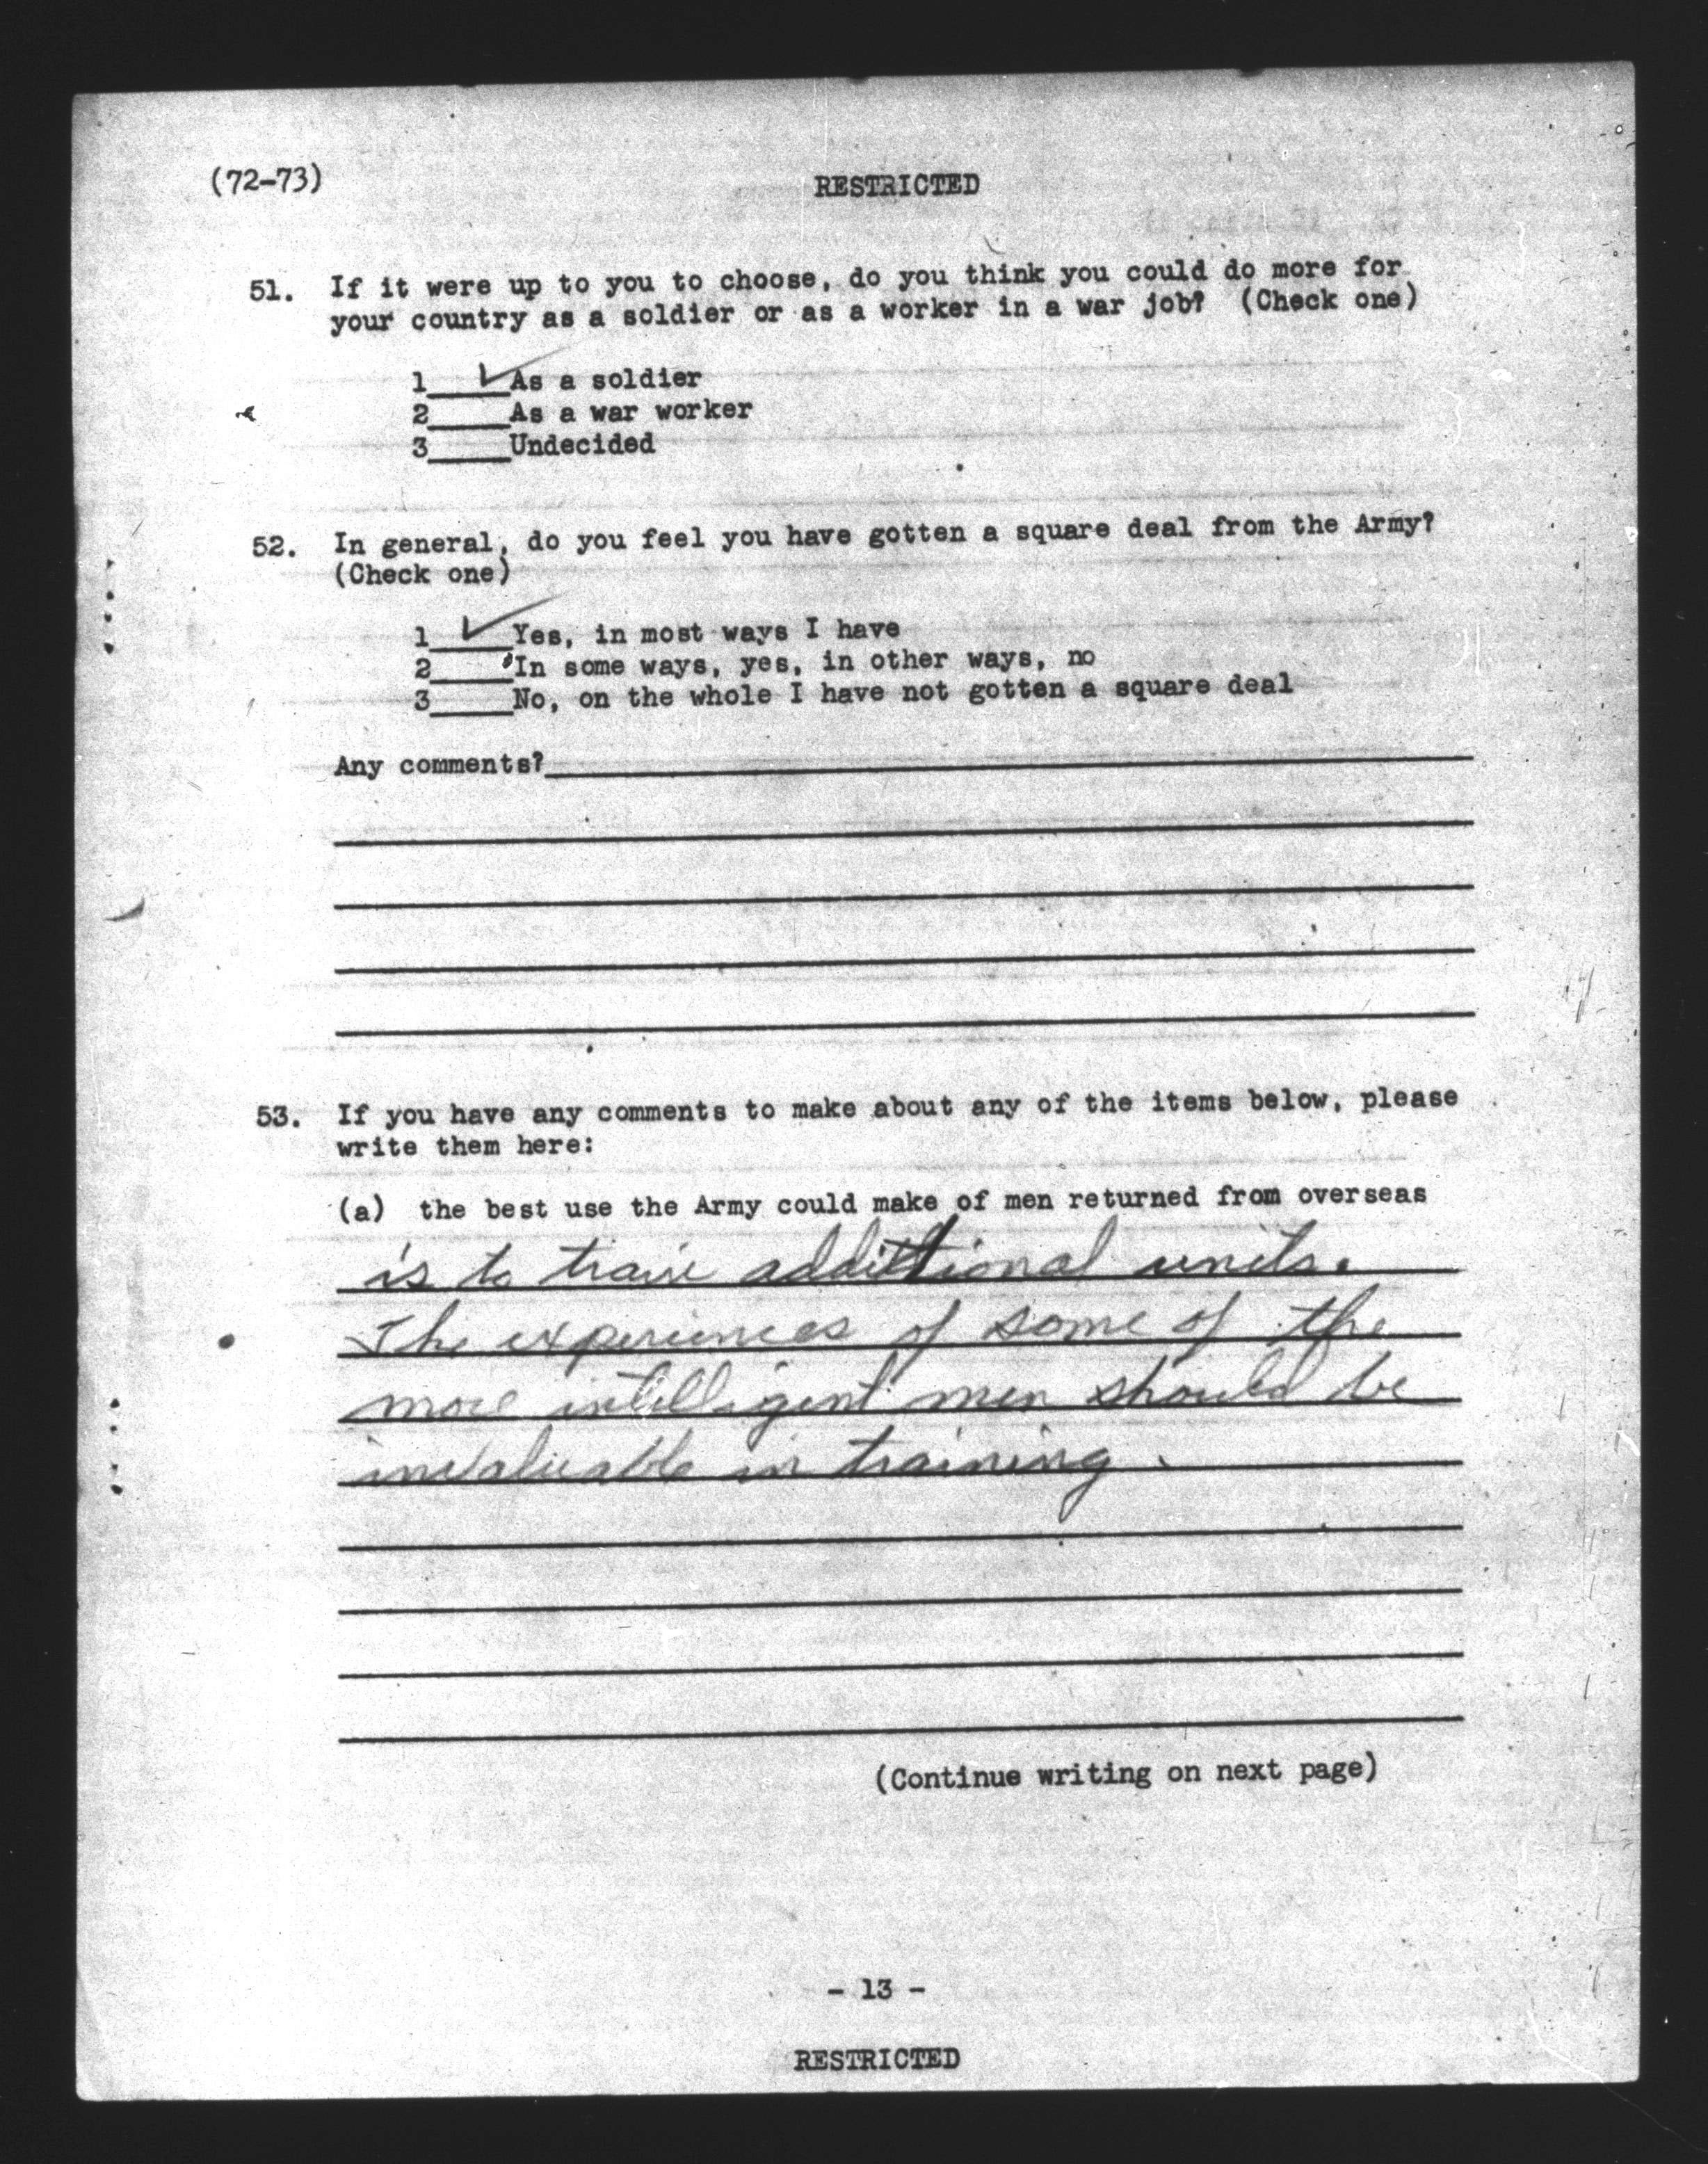 (72-73)
RESTRICTED
51. If it were up to you to choose, do you think you could do more for
your country as a soldier or as a worker in a war job? (Check one)
1 ✓ As a soldier
2_____As a war worker
3_____Undecided
52. In general, do you feel you have gotten a square deal from the Army?
(Check one)
1 ✓ Yes, in most ways I have
2_____In some ways, yes, in other ways, no
3_____No, on the whole I have not gotten a square deal
Any comments?
53. If you have any comments to make about any of the items below, please
write them here:
(a) the best use the Army could make of men returned from overseas
is to train additional units.
The experiences of some of the
more intelligent men should be
invaluable in training.
(Continue writing on next page)
- 13 -
RESTRICTED